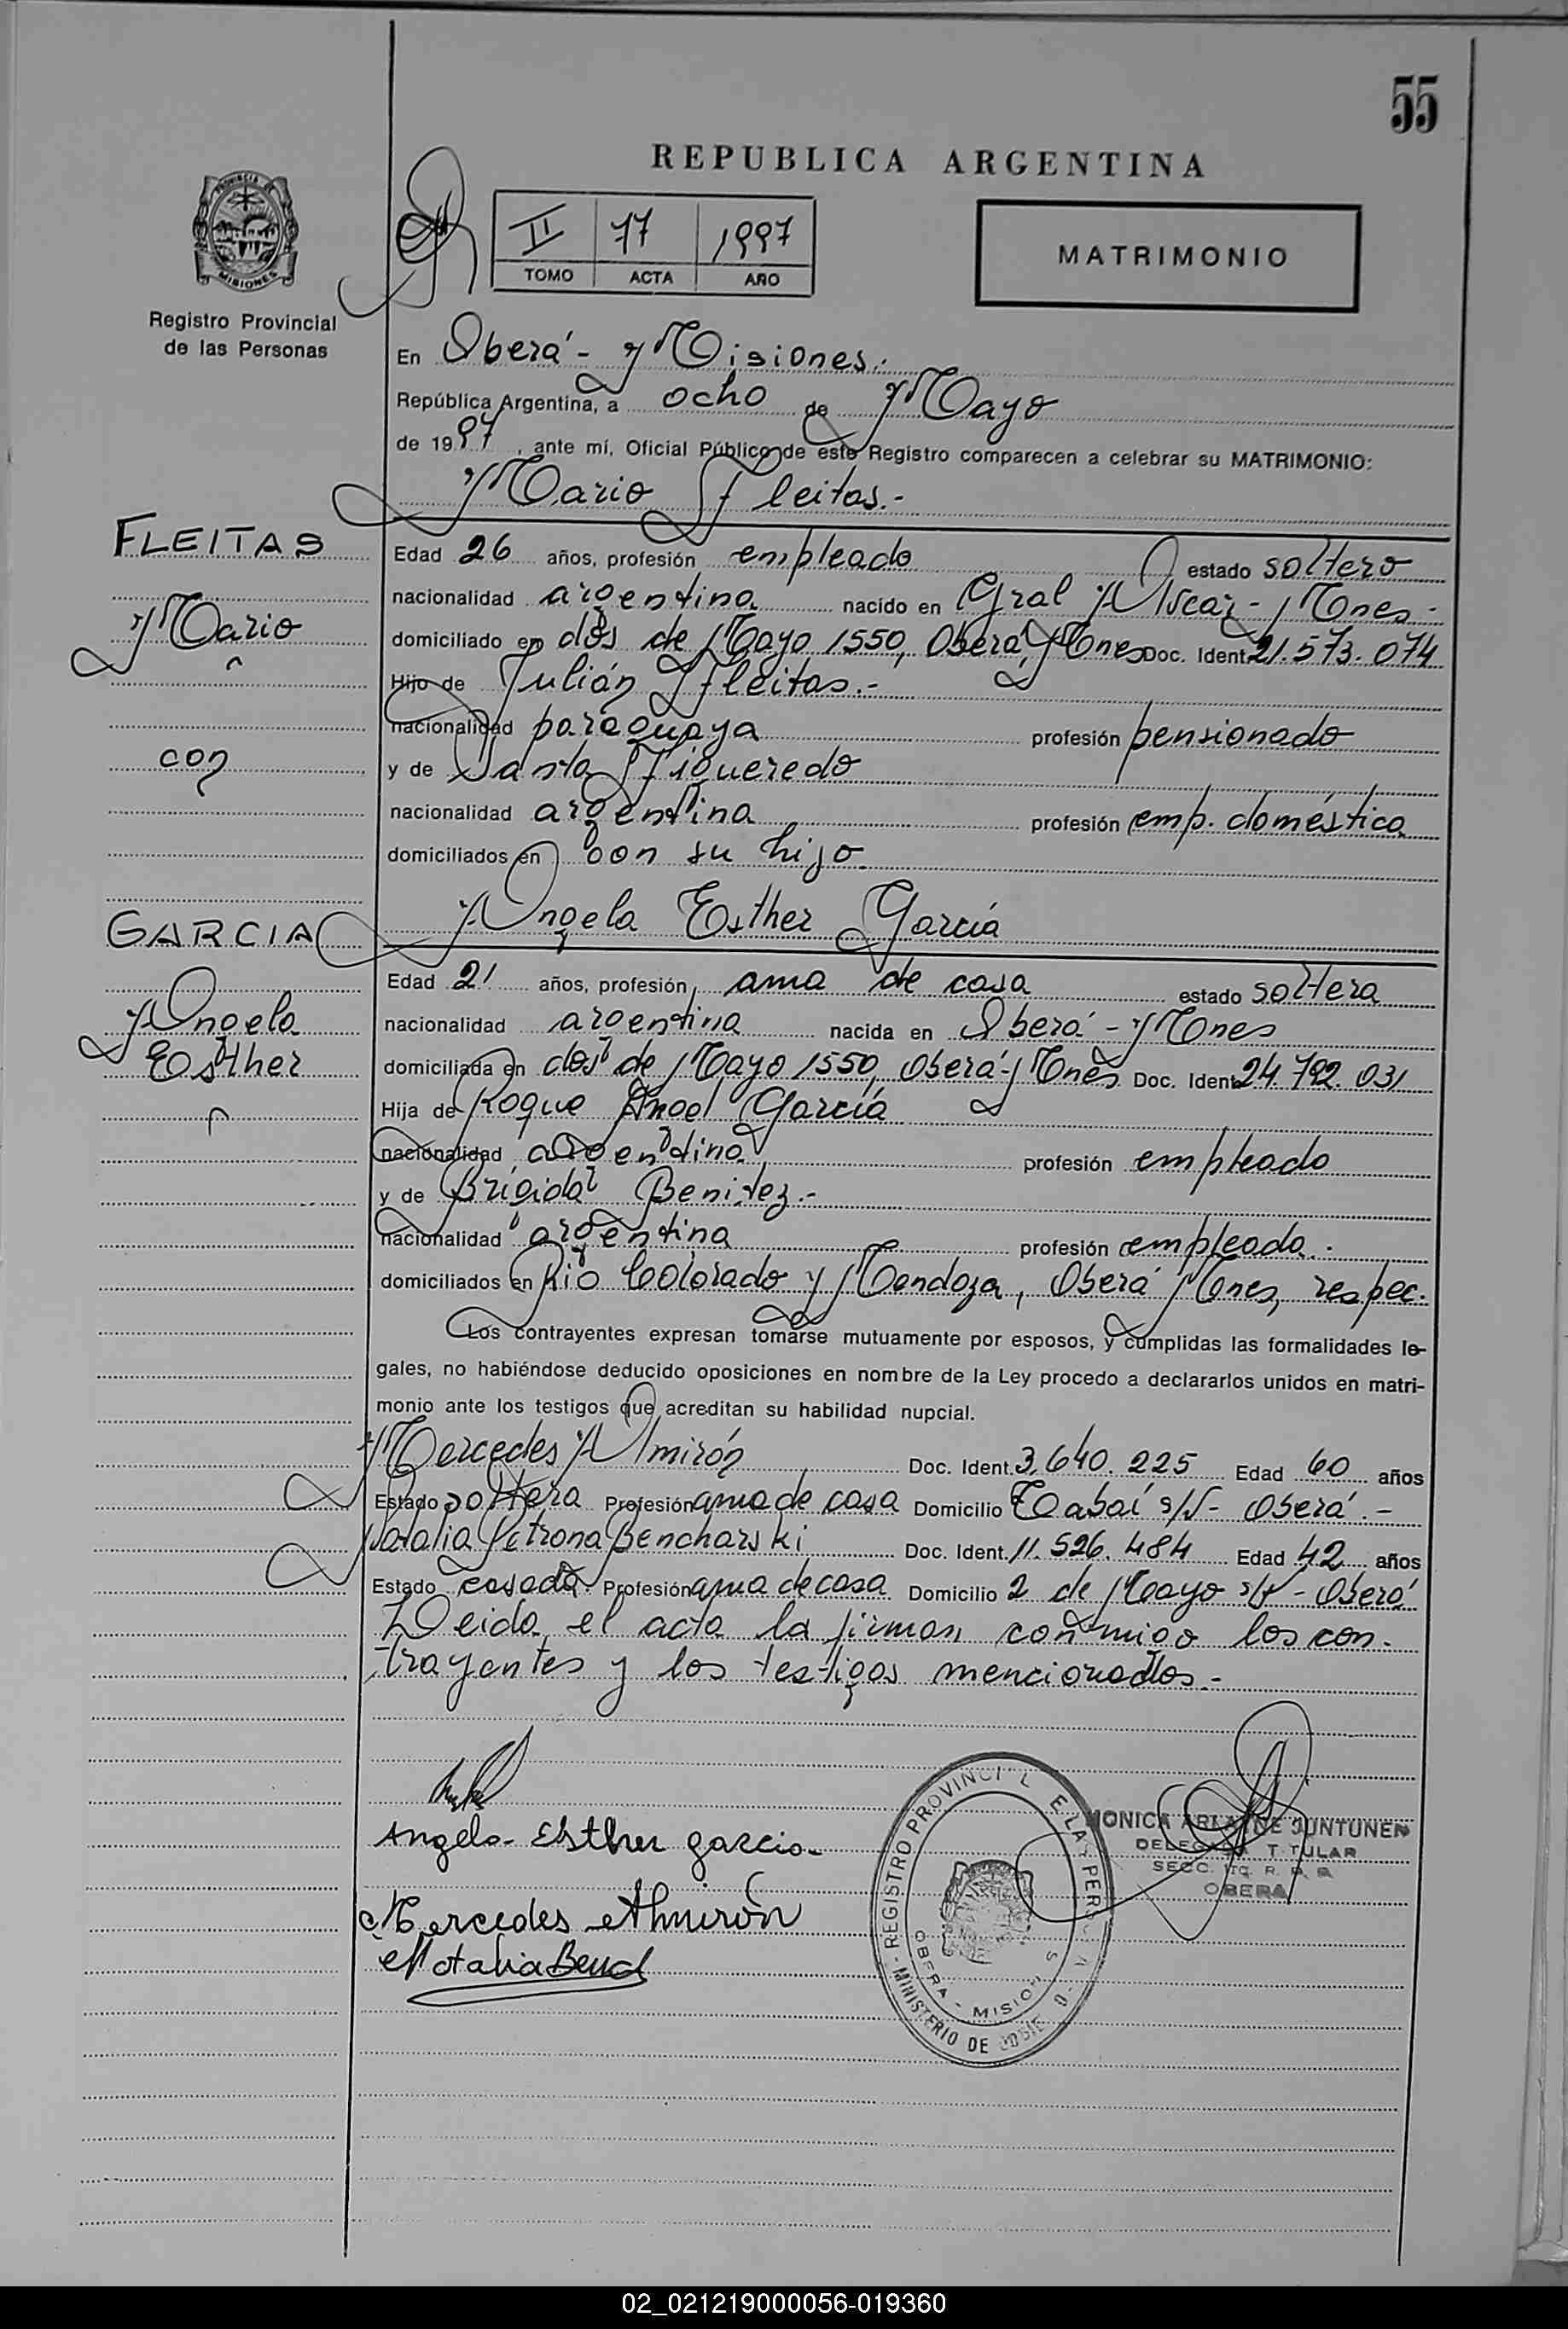 55
REPUBLICA ARGENTINA
PROVINCIA DE
MISIONES
II 77 1997
TOMO ACTA AÑO
MATRIMONIO
Registro Provincial
de las Personas
En Oberá - Misiones.-
República Argentina, a ocho de Mayo
de 1997, ante mí, Oficial Público de este Registro comparecen a celebrar su MATRIMONIO:
Mario Fleitas.-
FLEITAS
Mario
con
GARCIA
Angela
Esther
Edad 26 años, profesión empleado estado soltero
nacionalidad argentina nacido en Gral Alvear - Mnes -
domiciliado en dos de Mayo 1550, Oberá, Mnes Doc. Ident. 21.573.074
Hijo de Julián Fleitas.-
nacionalidad paraguaya profesión pensionado
y de Santa Figueredo
nacionalidad argentina profesión emp. doméstica
domiciliados en con su hijo
Angela Esther García
Edad 21 años, profesión ama de casa estado soltera
nacionalidad argentina nacida en Oberá - Mnes
domiciliada en dos de Mayo 1550, Oberá - Mnes Doc. Ident. 24.792.031
Hija de Roque Angel García
nacionalidad argentina profesión empleado
y de Brigida Benitez.-
nacionalidad argentina profesión empleada.
domiciliados en Rio Colorado y Mendoza, Oberá Mnes, respec.
Los contrayentes expresan tomarse mutuamente por esposos, y cumplidas las formalidades le-
gales, no habiéndose deducido oposiciones en nombre de la Ley procedo a declararlos unidos en matri-
monio ante los testigos que acreditan su habilidad nupcial.
Mercedes Almirón Doc. Ident. 3.640.225 Edad 60 años
Estado soltera Profesión ama de casa Domicilio Tabaí s/N - Oberá.-
Natalia Petrona Bencharski Doc. Ident. 11.526.484 Edad 42 años
Estado casada Profesión ama de casa Domicilio 2 de Mayo s/N - Oberá
Leida el acta la firman conmigo los con-
trayentes y los testigos mencionados.-
Angela Esther garcia
Mercedes Almirón
Natalia
MONICA ARIADNE JUNTUNEN
DELEGADA TITULAR
SECC. R. P.
OBERA
REGISTRO PROVINCIAL DE LAS PERSONAS
OBERA - MISIONES
MINISTERIO DE
02_021219000056-019360